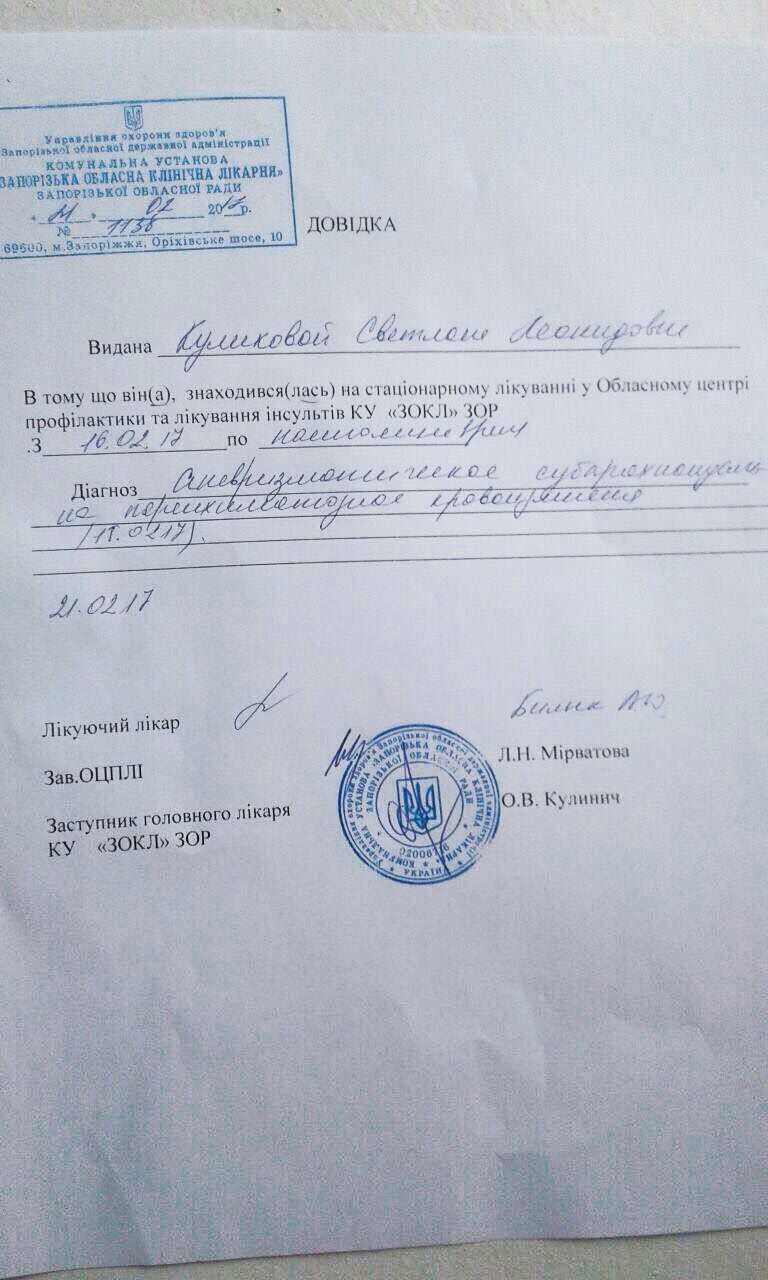 Управління охорони здоров'я
Запорізької обласної державної адміністрації
КОМУНАЛЬНА УСТАНОВА
«ЗАПОРІЗЬКА ОБЛАСНА КЛІНІЧНА ЛІКАРНЯ»
ЗАПОРІЗЬКОЇ ОБЛАСНОЇ РАДИ
"21" 02 2017р.
№ 1138
69600, м.Запоріжжя, Оріхівське шосе, 10
ДОВІДКА
Видана Куликовой Светлане Леонидовне
В тому що він(а), знаходився(лась) на стаціонарному лікуванні у Обласному центрі
профілактики та лікування інсультів КУ «ЗОКЛ» ЗОР
.З 16.02.17 по
Діагноз Аневризматическое субарахноидаль
но паренхиматозное кровоизлияние

21.02.17
Лікуючий лікар Билык АЮ
Зав.ОЦПЛІ Л.Н. Мірватова
Заступник головного лікаря О.В. Кулинич
КУ «ЗОКЛ» ЗОР
Управління охорони здоров'я Запорізької обласної державної адміністрації
КОМУНАЛЬНА УСТАНОВА «ЗАПОРІЗЬКА ОБЛАСНА КЛІНІЧНА ЛІКАРНЯ»
ЗАПОРІЗЬКОЇ ОБЛАСНОЇ РАДИ
УКРАЇНА